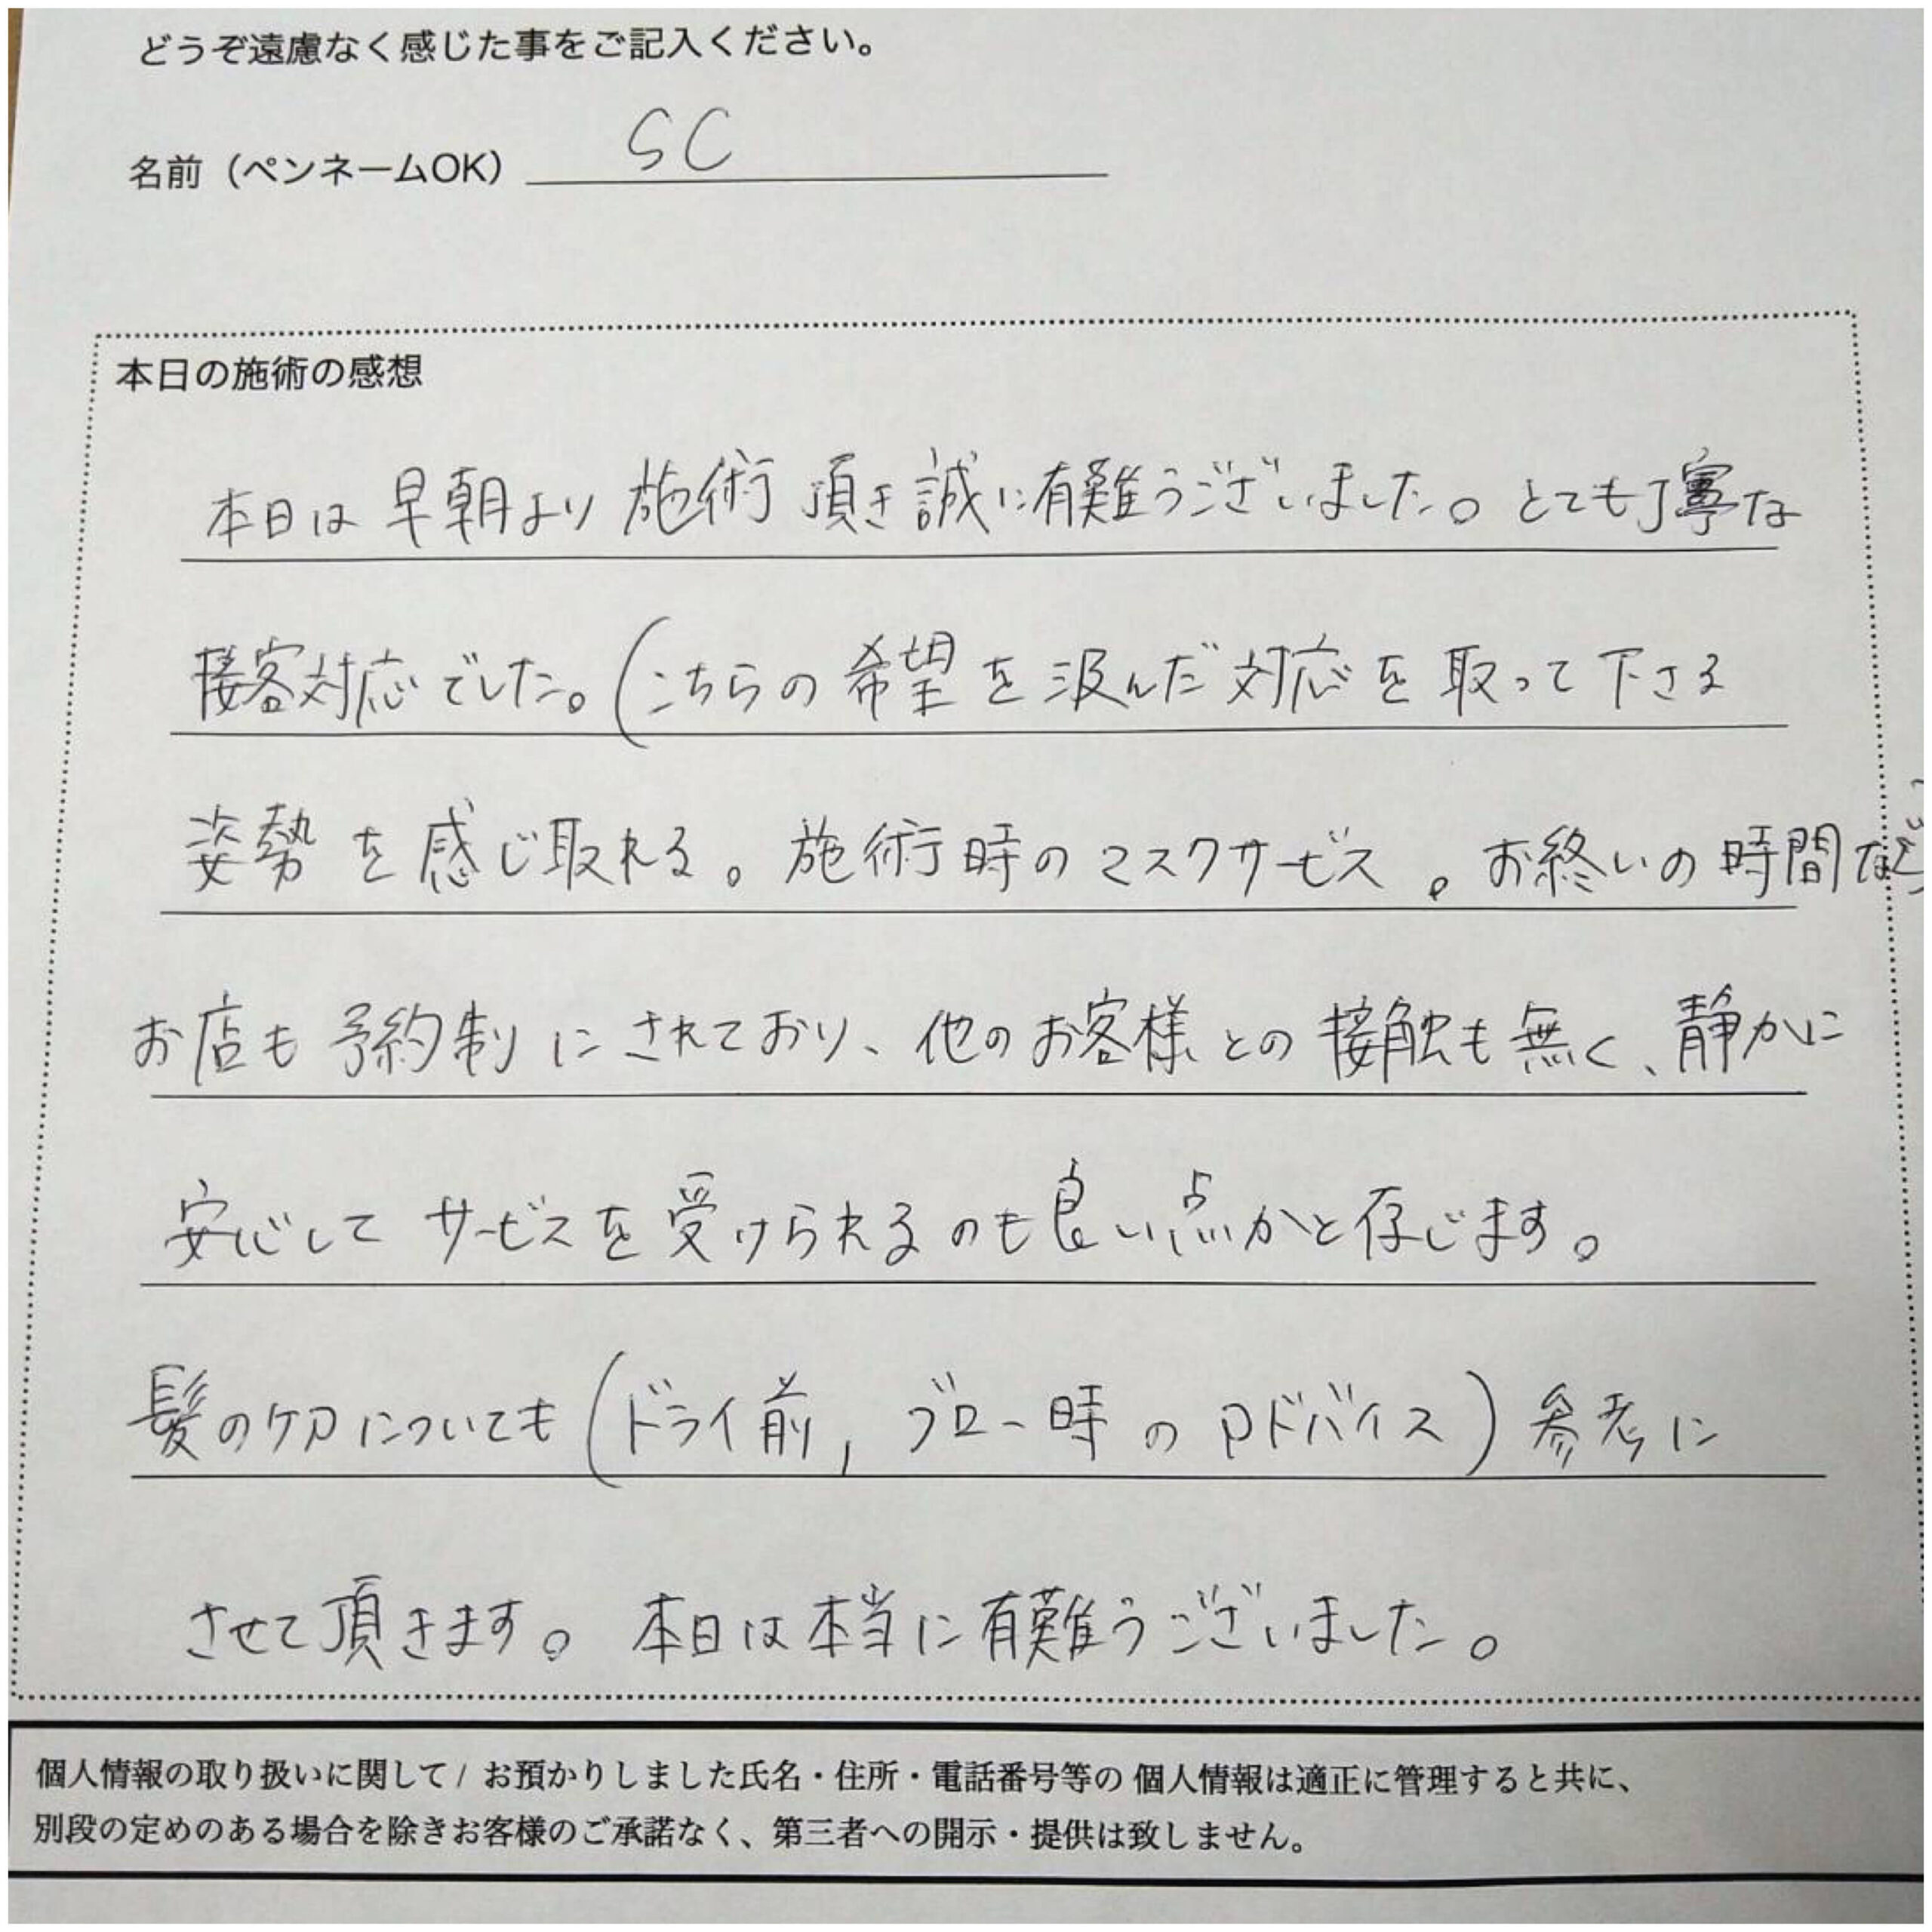 どうぞ遠慮なく感じた事をご記入ください。
名前（ペンネームOK） SC
本日の施術の感想
本日は早朝より施術頂き誠に有難うございました。とても丁寧な
接客対応でした。（こちらの希望を汲んだ対応を取って下さる
姿勢を感じ取れる。施術時のマスクサービス。お終いの時間など
お店も予約制にされており、他のお客様との接触も無く、静かに
安心してサービスを受けられるのも良い点かと存じます。
髪のケアについても（ドライ前，ブロー時のアドバイス）参考に
させて頂きます。本日は本当に有難うございました。
個人情報の取り扱いに関して / お預かりしました氏名・住所・電話番号等の 個人情報は適正に管理すると共に、
別段の定めのある場合を除きお客様のご承諾なく、第三者への開示・提供は致しません。